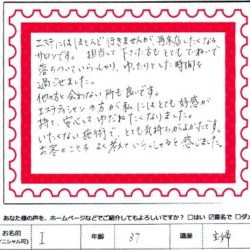 エステにはほとんど行きませんが再来店したくなる
サロンです。 担当して下さった方もとてもていねいで
落ちついていらっしゃり、ゆったりとした時間を
過ごせました。
他の方と会わない所も良いです。
エステティシャンの方が私にはとても好感が
持て、安心してゆだねたくなりました。
いたくない施術で、とても気持ちがよかったです。
お客のことをよく考えていらっしゃると感じました。
あなた様の声を、ホームページなどでご紹介してもよろしいですか? □はい ☑匿名で □ダ
お名前 I 年齢 37 職業 主婦
イニシャル可)